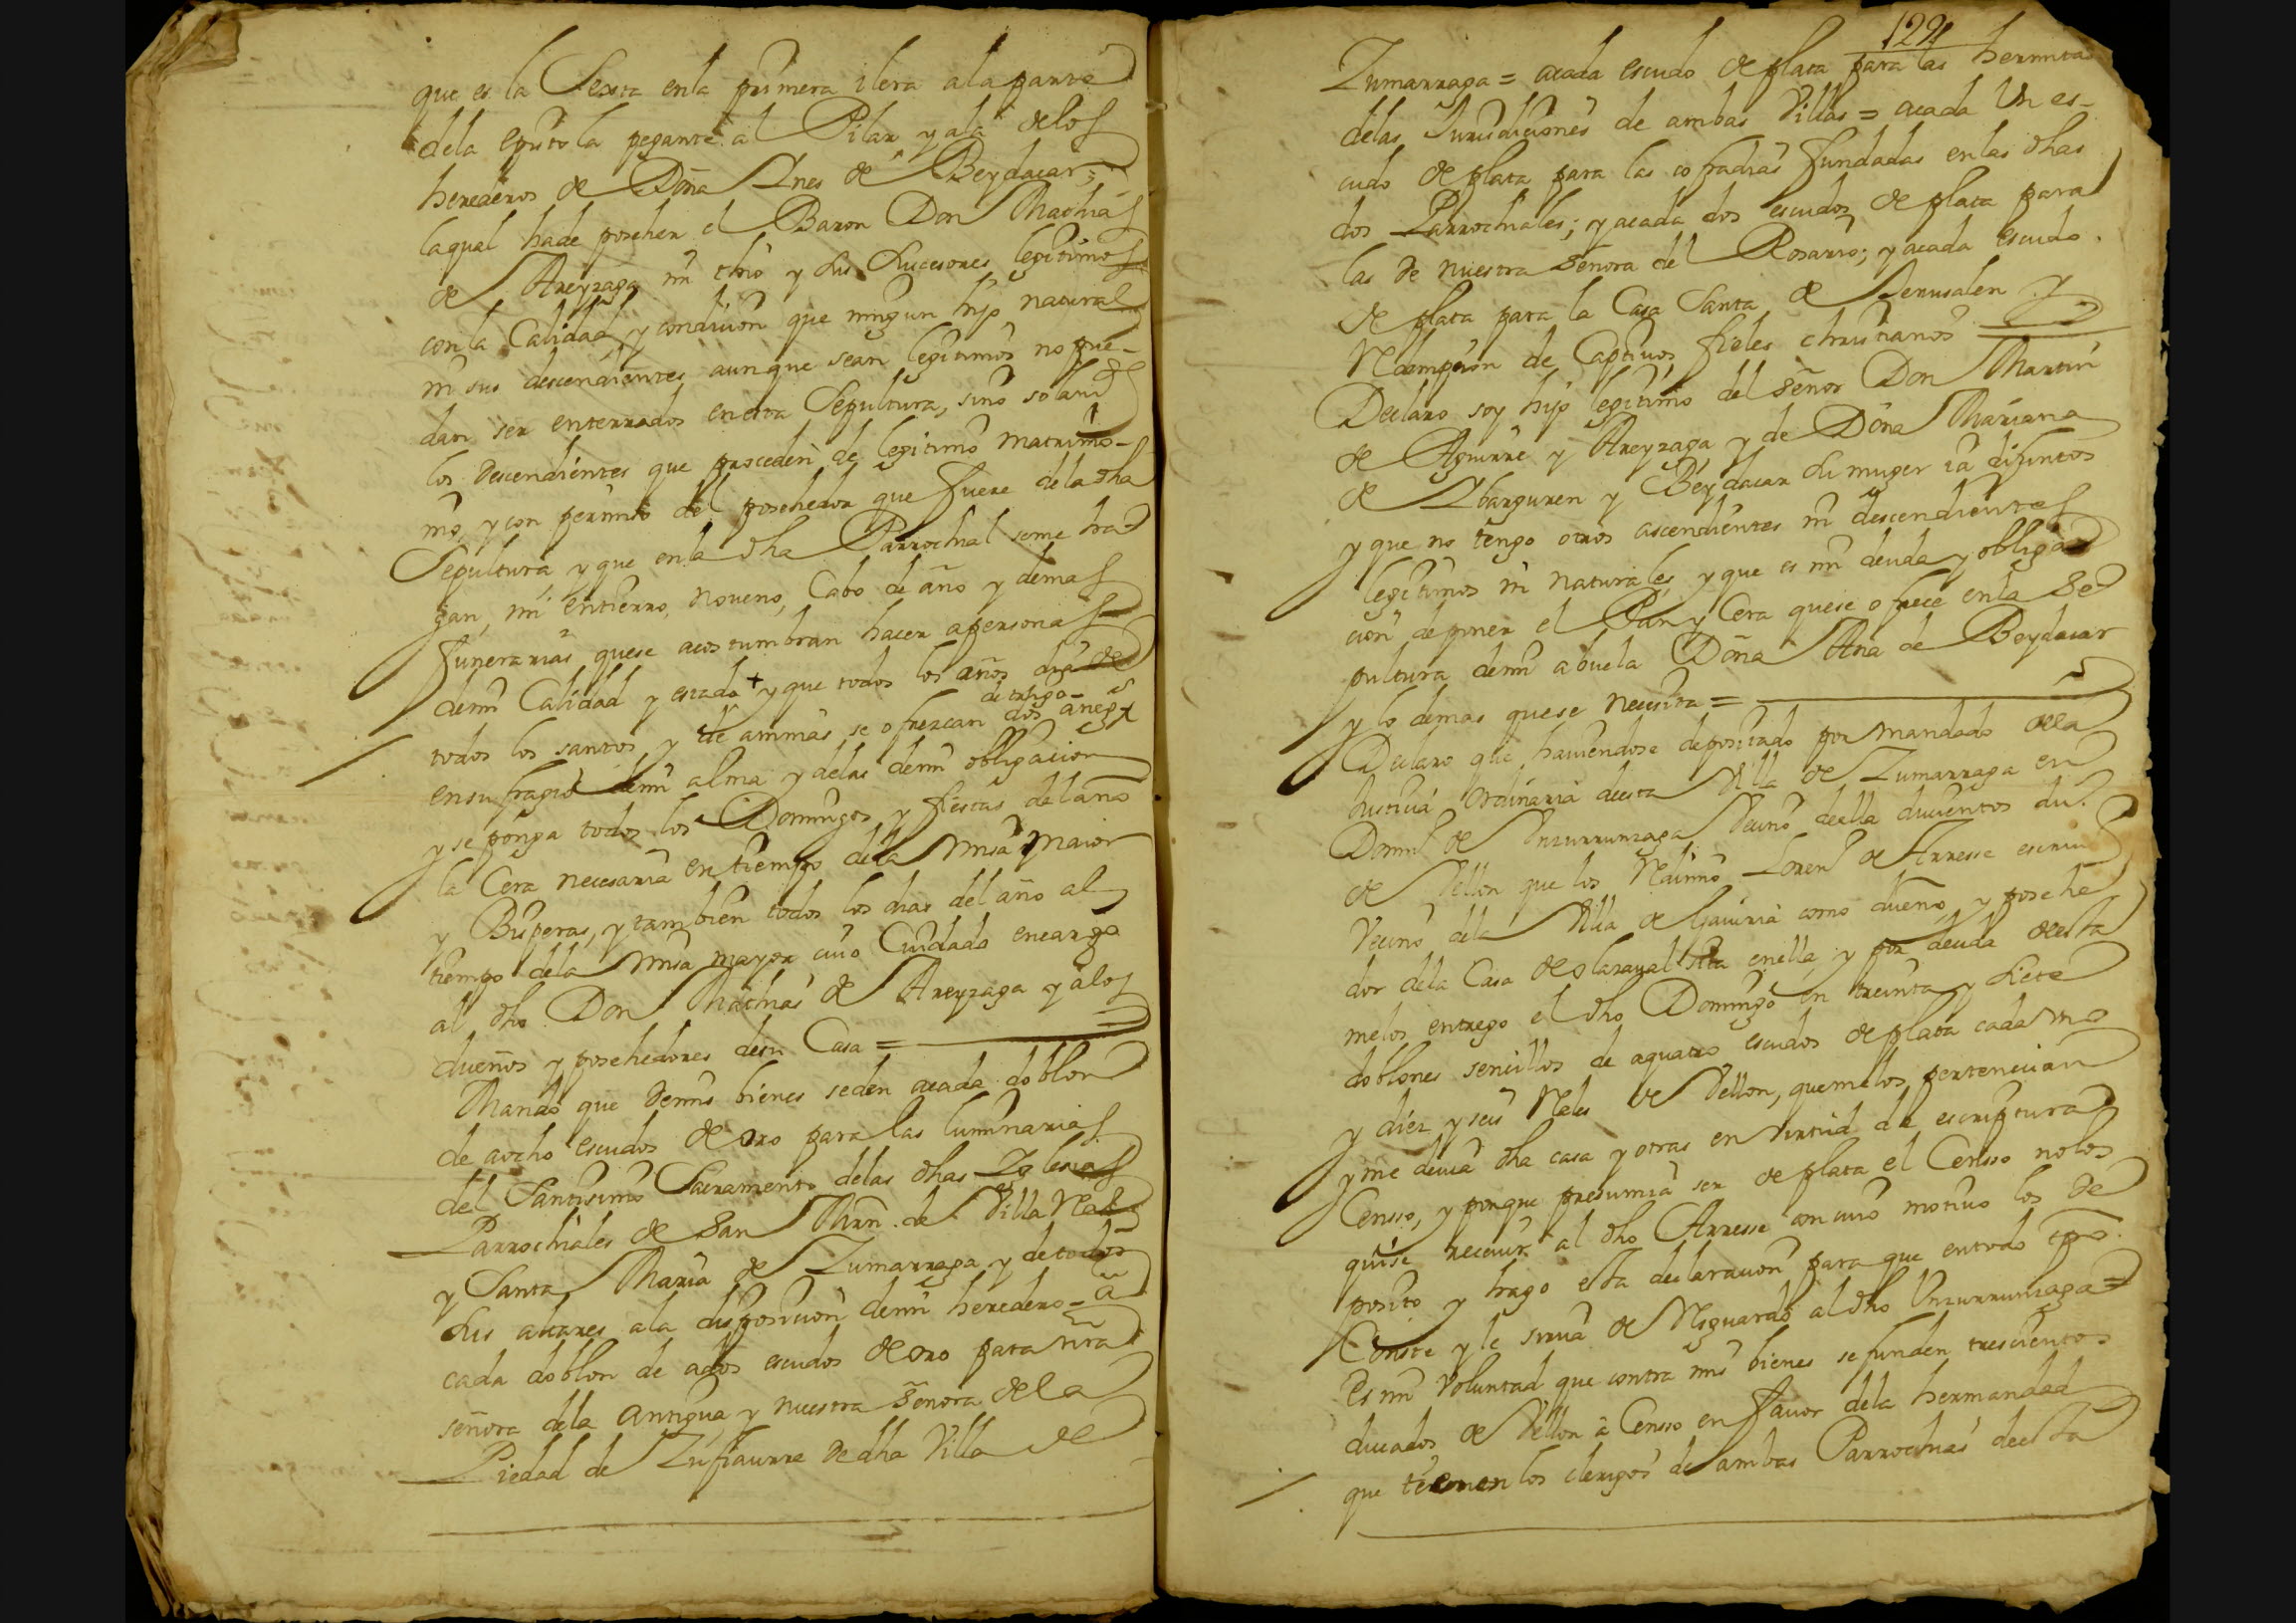 que es la Sexta en la primera ilera a la parte
dela epistola pegante al Pilar y ala de los
herederos de Doña Ines de Beydacar;
la qual ha de posseher el Baron Don Mathias
de Areyzaga mi thio y sus Sucesores legitimos
con la Calidad y condicion que ningun hijo natural
ni sus descendientes aunque sean legitimos no pue-
dan ser enterrados en esta Sepultura, sino solam.te
los descendientes que proceden de legitimo matrimo-
nio, y con permiso del posehedor que fuere de la dha
Sepultura y que en la dha Parrochial se me ha
gan, mi entierro, noveno, Cabo de año y demas
funerarias que se acostumbran hacer a personas
de mi Calidad y estado + y que todos los años dia de
todos los santos y de animas se ofrezcan dos aneg.s de trigo
en sufragio de mi alma y de las de mi obligacion
y se ponga todos los Domingos y fiestas del año
la Cera necesaria en tiempo de la Misa maior
y Bisperas, y tambien todos los dias del año al
tiempo de la Misa mayor cuio Cuidado encargo
al dho Don Mathias de Areyzaga y a los
dueños y posehedores de su Casa =
Mando que de mis bienes se den a cada doblon
de a ocho escudos de oro para las luminarias
del Santisimo Sacramento de las dhas Iglesias
Parrochiales de San Mrn. de Villa Real
y Santa Maria de Zumarraga y de todos
sus altares a la disposicion de mi heredero = a
cada doblon de a dos escudos de oro para nra
señora de la Antigua y nuestra señora de la
Piedad de Zufiaurre de dha Villa de
124
Zumarraga = a cada escudo de plata para las hermitas
de las Jurisdiciones de ambas Villas = a cada Un es-
cudo de plata para las cofradias fundadas en las dhas
dos Parrochiales; y a cada dos escudos de plata para
las de nuestra señora del Rosario; y a cada escudo
de plata para la Casa Santa de Jerusalen y
Redempcion de Captivos fieles christianos
Declaro soy hijo legitimo del señor Don Martin
de Aguirre y Areyzaga y de Doña Mariana
de Ybarguren y Beydacar su muger ia difuntos
y que no tengo otros ascendientes ni descendientes
legitimos ni naturales, y que es mi deuda y obliga
cion de poner el Pan y Cera que se ofrece en la Se
pultura de mi abuela Doña Ana de Beydacar
y lo demas que se necesita =
Declaro que haviendose depositado por mandado de la
Justicia Ordinaria de esta Villa de Zumarraga en
Dom.o de Inzurrunzaga Vecino de ella ducientos du.s
de Vellon que los Redimio Loren.o de Arresse escriv.o
Vecino de la Villa de Gaviria como dueño y posehe
dor de la Casa de Olarazal sita en ella, y por deuda de esta
me los entrego el dho Domingo en treinta y siete
doblones sencillos de a quatro escudos de plata cada uno
y diez y seis Reales de Vellon, que me los pertenecian
y me devia dha casa y otras en virtud de escriptura
Censso, y porque presumia ser de plata el Censso no los
quise recevir al dho Arresse con cuio motivo los de
posito y hago esta declaracion para que en todo tpo.
Conste y le sirva de Resguardo al dho Inzurrunzaga =
Es mi voluntad que contra mis bienes se funden trescientos
ducados de Vellon a Censso en favor de la hermandad
que tienen los clerigos de ambas Parrochias de esta